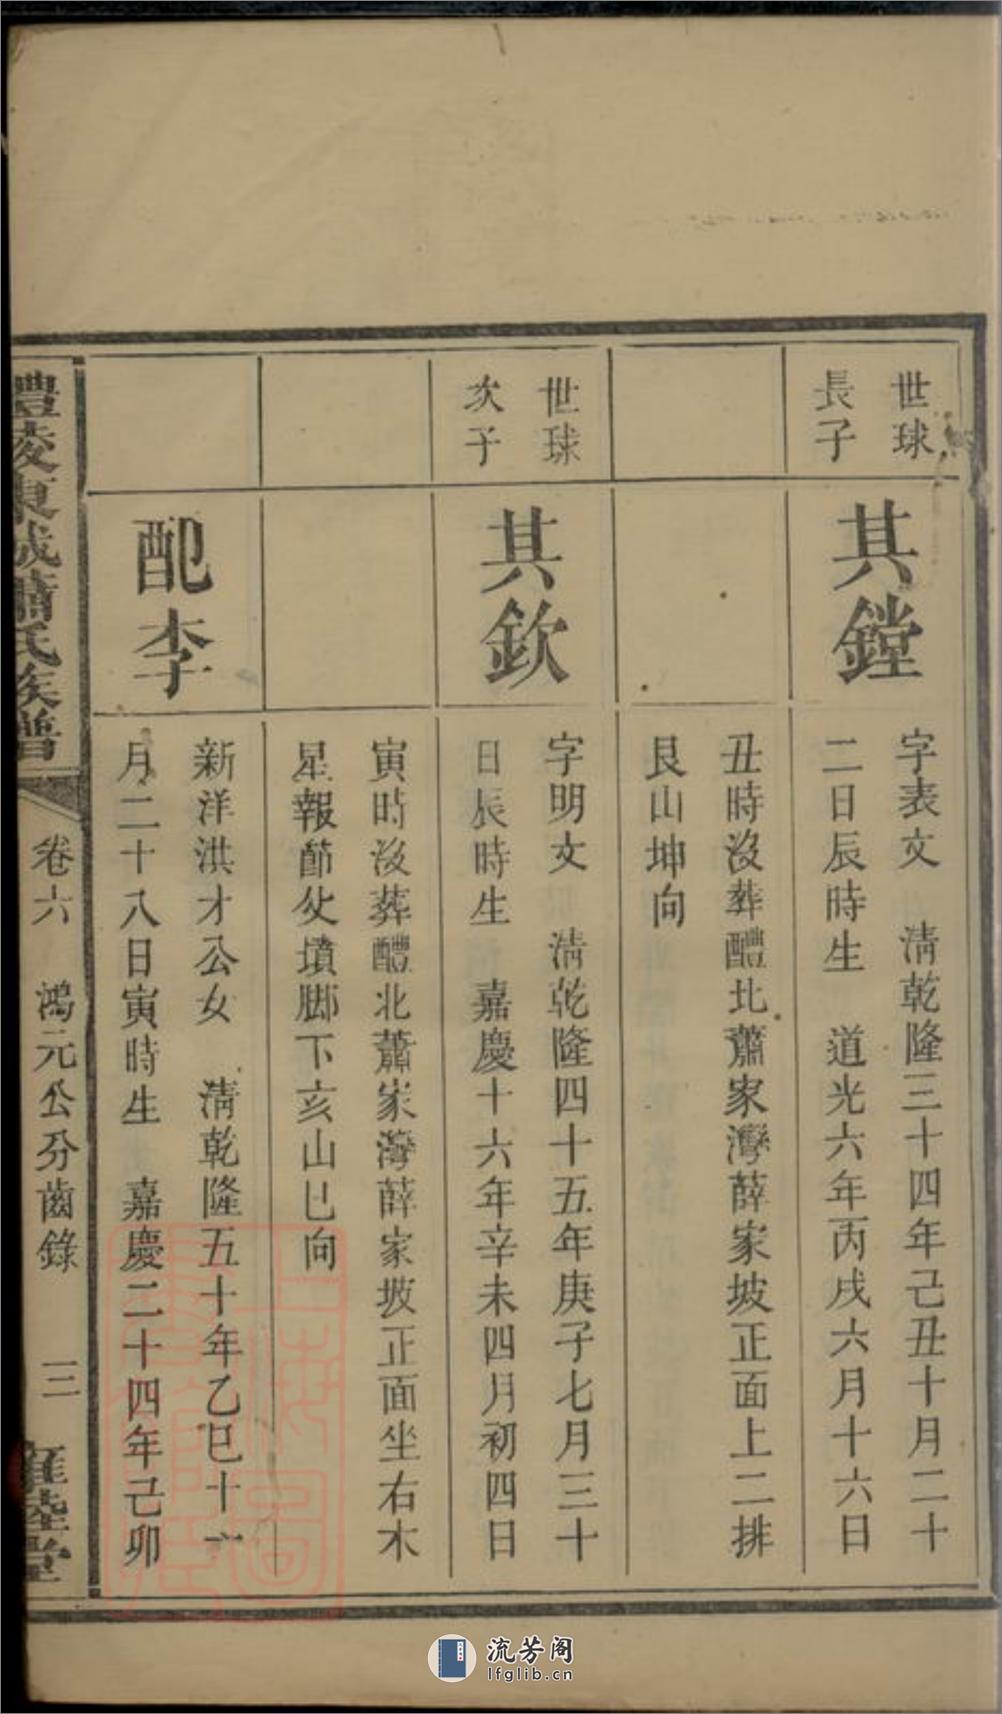 世球
長子
其鏜
字表文　清乾隆三十四年己丑十月二十
二日辰時生　道光六年丙戌六月十六日
丑時沒葬醴北蕭家灣薛家坡正面上二排
艮山坤向
世球
次子
其欽
字明文　清乾隆四十五年庚子七月三十
日辰時生　嘉慶十六年辛未四月初四日
寅時沒葬醴北蕭家灣薛家坡正面坐右木
星報節父墳脚下亥山巳向
配李
新洋洪才公女　清乾隆五十年乙巳十
月二十八日寅時生　嘉慶二十四年己卯
醴陵東城蕭氏族譜
卷六　鴻元公分齒錄　三
睦堂
流芳阁
lfglib.cn